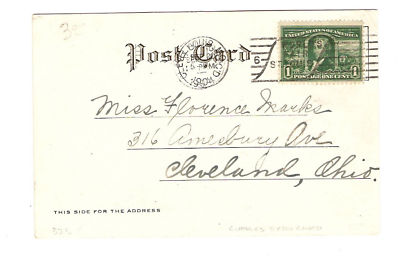 Post Card
UNITED STATES OF AMERICA
1 POSTAGE ONE CENT 1
6
Miss Florence Marks
316 Amesbury Ave
Cleveland, Ohio.
THIS SIDE FOR THE ADDRESS